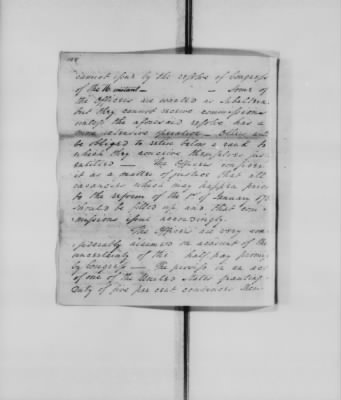 cannot issue by the resolve of Congress
of the 16 instant — Some of
the Officers are wanted as Subalterns
but they cannot receive commissions
unless the aforesaid resolve has a
more extensive operation — Others will
be obliged to retire below a rank to
which they conceive themselves
entitled — The Officers conceive
it as a matter of justice that all
vacancies which may happen prior
to the reform of the 1st of January
should be filled up and that com
missions issue accordingly.
The Officers are very con
siderably alarmed on account of the
uncertainty of the half pay
by Congress — The proviso in an act
of one of the United States granting
duty of five per cent convinces them